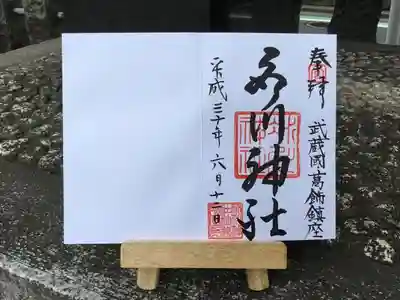 奉拝 武蔵國葛飾鎮座
氷川神社
平成三十年六月十二日